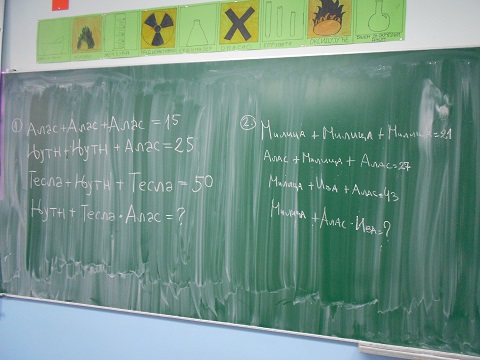 1) Алас + Алас + Алас = 15
Њутн + Њутн + Алас = 25
Тесла + Њутн + Тесла = 50
Њутн + Тесла · Алас = ?
2) Милица + Милица + Милица = 21
Алас + Милица + Алас = 27
Милица + Ива + Алас = 43
Милица + Алас · Ива = ?